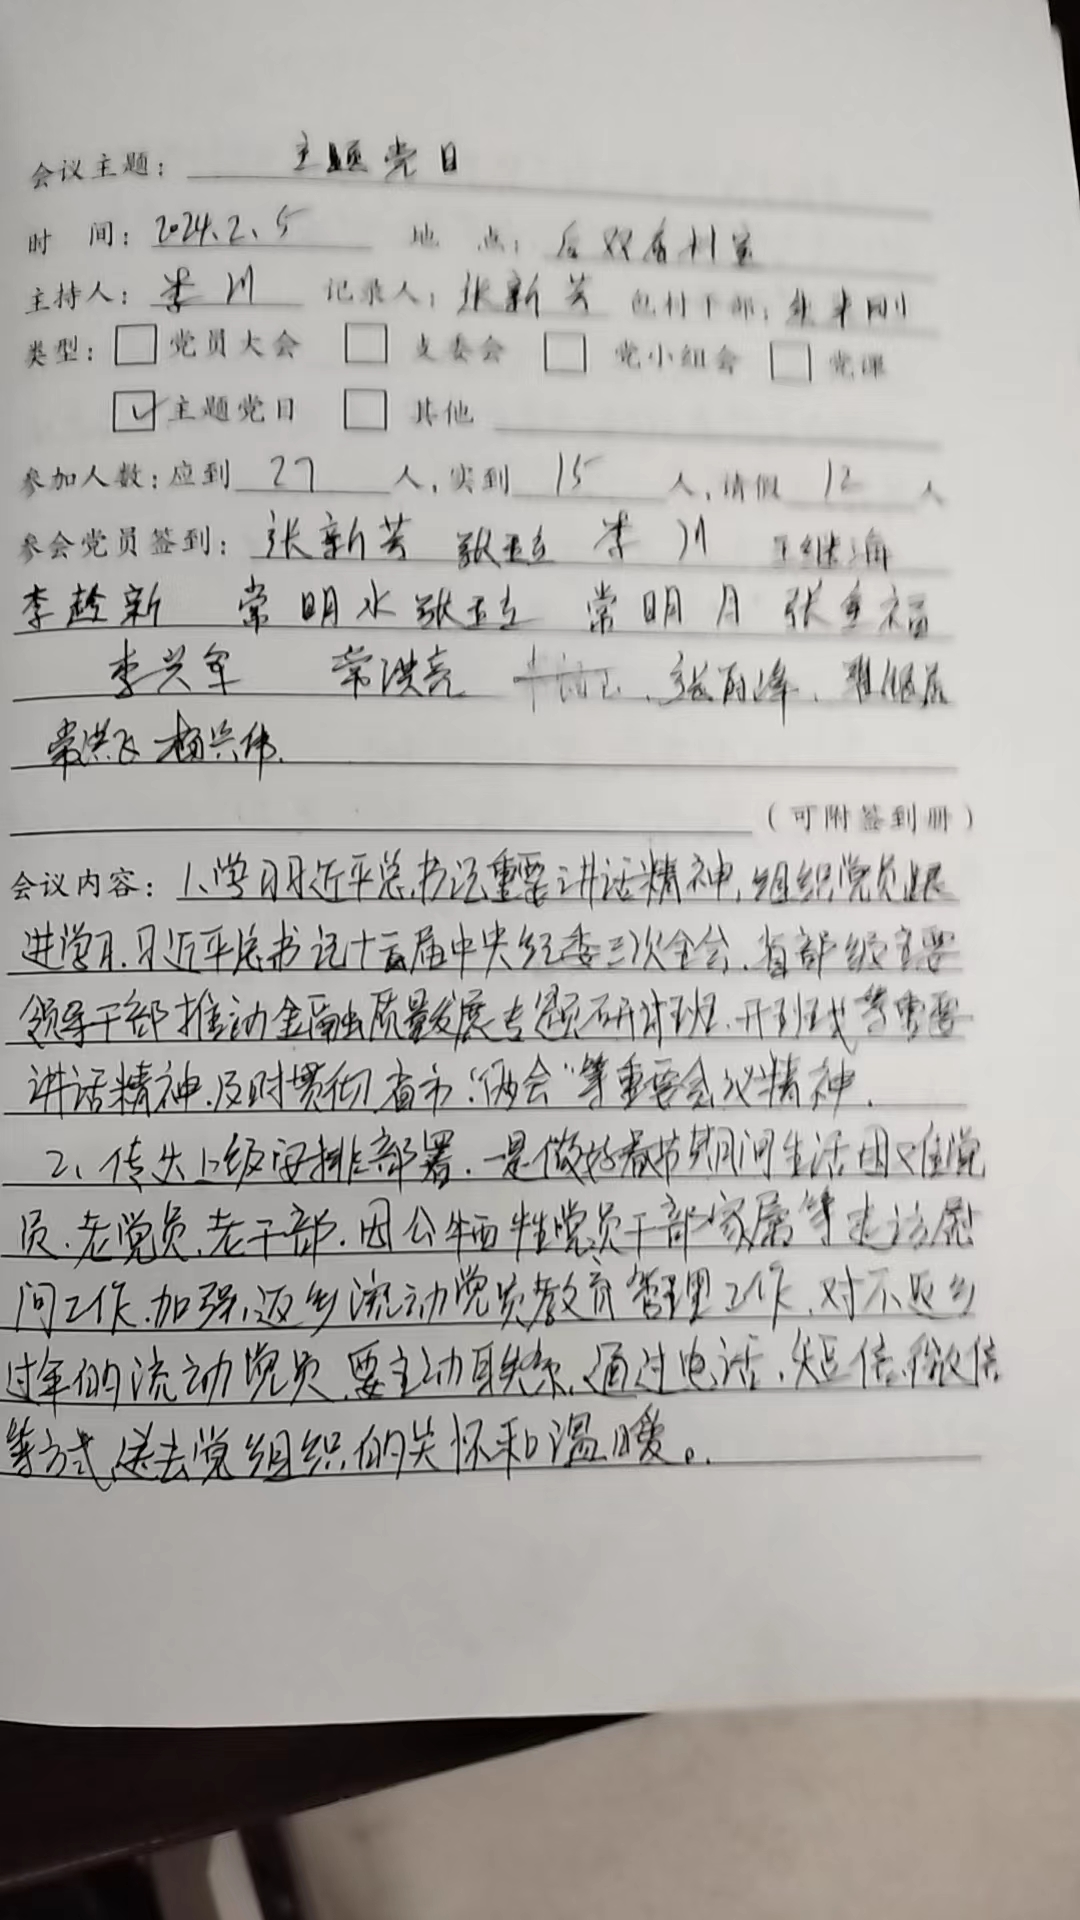 会议主题: 主题党日
时 间: 2024.2.5 地 点: 后双香村室
主持人: 李川 记录人: 张新芳 包村干部:
类型: 党员大会 支委会 党小组会 党课
主题党日 其他
参加人数: 应到 27 人, 实到 15 人, 请假 12 人
参会党员签到: 张新芳 张玉立 李川 王继海
李趁新 常明水 张玉立 常明月 张重福
李兴军 常洪亮
常洪飞 杨兴伟.
(可附签到册)
会议内容: 1、学习习近平总书记重要讲话精神, 组织党员跟
进学习. 习近平总书记十届中央纪委三次全会、省部级主要
领导干部推动金融质量发展专题研讨班. 开班式等重要
讲话精神. 及时贯彻. 省市“两会”等重要会议精神.
2、传达上级安排部署. 一是做好春节期间生活困难党
员、老党员、老干部、因公牺牲党员干部家属等走访慰
问工作. 加强返乡流动党员教育管理工作. 对不返乡
过年的流动党员, 要主动联系, 通过电话、短信、微信
等方式, 送去党组织的关怀和温暖。.